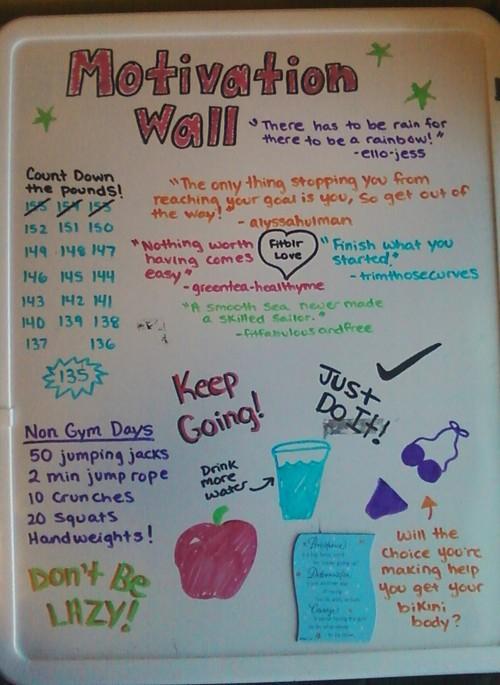 Motivation
Wall
"There has to be rain for
there to be a rainbow!"
-ello-jess
Count Down
the pounds!
155 154 153
152 151 150
149 148 147
146 145 144
143 142 141
140 139 138
137 136
135
"The only thing stopping you from
reaching your goal is you, so get out of
the way!"
- alyssahulman
"Nothing worth
having comes
easy"
-greentea-healthyme
Fitblr
Love
"Finish what you
started."
-trimthosecurves
"A smooth sea never made
a skilled sailor."
-fitfabulousandfree
Keep
Going!
Just
Do It!
Non Gym Days
50 jumping jacks
2 min jump rope
10 Crunches
20 Squats
Handweights!
Don't Be
LAZY!
Drink
more
water
Will the
choice you're
making help
you get your
bikini
body?